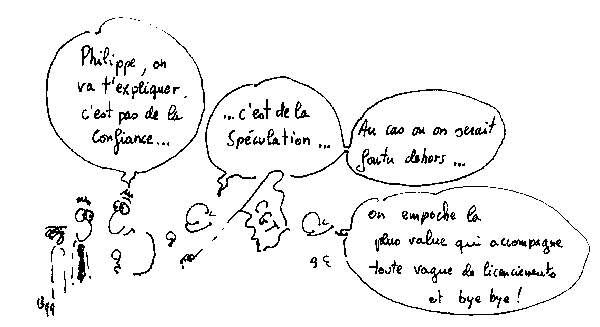 Philippe, on
va t'expliquer.
c'est pas de la
Confiance...
... c'est de la
Spéculation ...
Au cas ou on serait
foutu dehors ...
on empoche la
plus value qui accompagne
toute vague de licenciements
et bye bye !